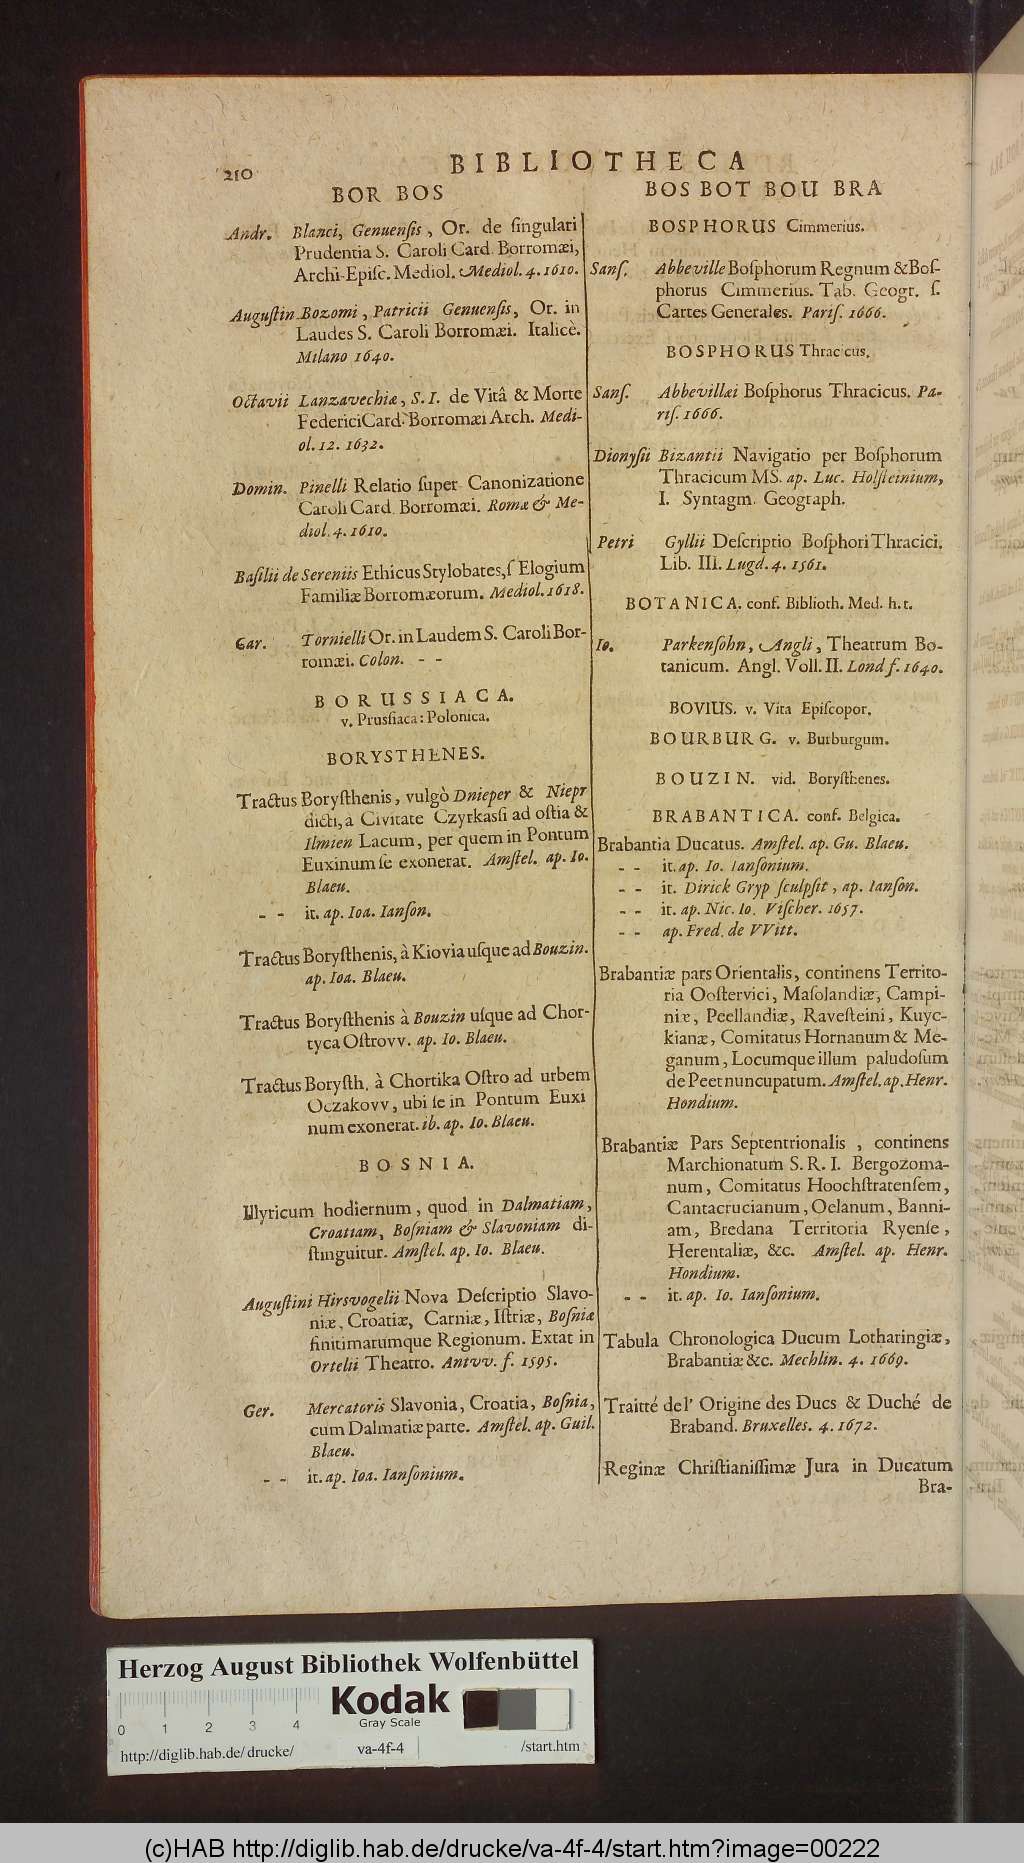 210
BIBLIOTHECA
BOR BOS
Andr. Blanci, Genuensis, Or. de singulari
Prudentia S. Caroli Card. Borromæi,
Archi-Episc. Mediol. Mediol. 4. 1610.
Augustin. Bozomi, Patricii Genuensis, Or. in
Laudes S. Caroli Borromæi. Italicè.
Milano 1640.
Octavii Lanzavechiæ, S. I. de Vitâ & Morte
Federici Card. Borromæi Arch. Medi-
ol. 12. 1632.
Domin. Pinelli Relatio super Canonizatione
Caroli Card. Borromæi. Romæ & Me-
diol. 4. 1610.
Basilii de Sereniis Ethicus Stylobates, s Elogium
Familiæ Borromæorum. Mediol. 1618.
Car. Tornielli Or. in Laudem S. Caroli Bor-
romæi. Colon. - -
BORUSSIACA.
v. Prussiaca: Polonica.
BORYSTHENES.
Tractus Borysthenis, vulgò Dnieper & Niepr
dicti, a Civitate Czyrkassi ad ostia &
Ilmien Lacum, per quem in Pontum
Euxinum se exonerat. Amstel. ap. Io.
Blaeu.
- - it. ap. Ioa. Ianson.
Tractus Borysthenis, à Kiovia usque ad Bouzin.
ap. Ioa. Blaeu.
Tractus Borysthenis à Bouzin usque ad Chor-
tyca Ostrovv. ap. Io. Blaeu.
Tractus Borysth. à Chortika Ostro ad urbem
Oczakovv, ubi se in Pontum Euxi
num exonerat. ib. ap. Io. Blaeu.
BOSNIA.
Illyricum hodiernum, quod in Dalmatiam,
Croatiam, Bosniam & Slavoniam di-
stinguitur. Amstel. ap. Io. Blaeu.
Augustini Hirsvogelii Nova Descriptio Slavo-
niæ, Croatiæ, Carniæ, Istriæ, Bosniæ
finitimarumque Regionum. Extat in
Ortelii Theatro. Antvv. f. 1595.
Ger. Mercatoris Slavonia, Croatia, Bosnia,
cum Dalmatiæ parte. Amstel. ap. Guil.
Blaeu.
- - it. ap. Ioa. Iansonium.
BOS BOT BOU BRA
BOSPHORUS Cimmerius.
Sans. Abbeville Bosphorum Regnum & Bos-
phorus Cimmerius. Tab. Geogr. s.
Cartes Generales. Paris. 1666.
BOSPHORUS Thracicus.
Sans. Abbevillæi Bosphorus Thracicus. Pa-
ris. 1666.
Dionysii Bizantii Navigatio per Bosphorum
Thracicum MS. ap. Luc. Holsteinium,
I. Syntagm. Geograph.
Petri Gyllii Descriptio Bosphori Thracici.
Lib. III. Lugd. 4. 1561.
BOTANICA. conf. Biblioth. Med. h. t.
Io. Parkensohn, Angli, Theatrum Bo-
tanicum. Angl. Voll. II. Lond f. 1640.
BOVIUS. v. Vita Episcopor.
BOURBURG. v. Burburgum.
BOUZIN. vid. Borysthenes.
BRABANTICA. conf. Belgica.
Brabantia Ducatus. Amstel. ap. Gu. Blaeu.
- - it. ap. Io. Iansonium.
- - it. Dirick Gryp sculpsit, ap. Ianson.
- - it. ap. Nic. Io. Vischer. 1657.
- - ap. Fred. de VVitt.
Brabantiæ pars Orientalis, continens Territo-
ria Oostervici, Masolandiæ, Campi-
niæ, Peellandiæ, Ravesteini, Kuyc-
kianæ, Comitatus Hornanum & Me-
ganum, Locumque illum paludosum
de Peet nuncupatum. Amstel. ap. Henr.
Hondium.
Brabantiæ Pars Septentrionalis, continens
Marchionatum S. R. I. Bergozoma-
num, Comitatus Hoochstratensem,
Cantacrucianum, Oelanum, Banni-
am, Bredana Territoria Ryense,
Herentaliæ, &c. Amstel. ap. Henr.
Hondium.
- - it. ap. Io. Iansonium.
Tabula Chronologica Ducum Lotharingiæ,
Brabantiæ &c. Mechlin. 4. 1669.
Traitté del' Origine des Ducs & Duché de
Braband. Bruxelles. 4. 1672.
Reginæ Christianissimæ Jura in Ducatum
Bra-
Herzog August Bibliothek Wolfenbüttel
Kodak
Gray Scale
0 1 2 3 4
http://diglib.hab.de/drucke/ va-4f-4 /start.htm
(c)HAB http://diglib.hab.de/drucke/va-4f-4/start.htm?image=00222